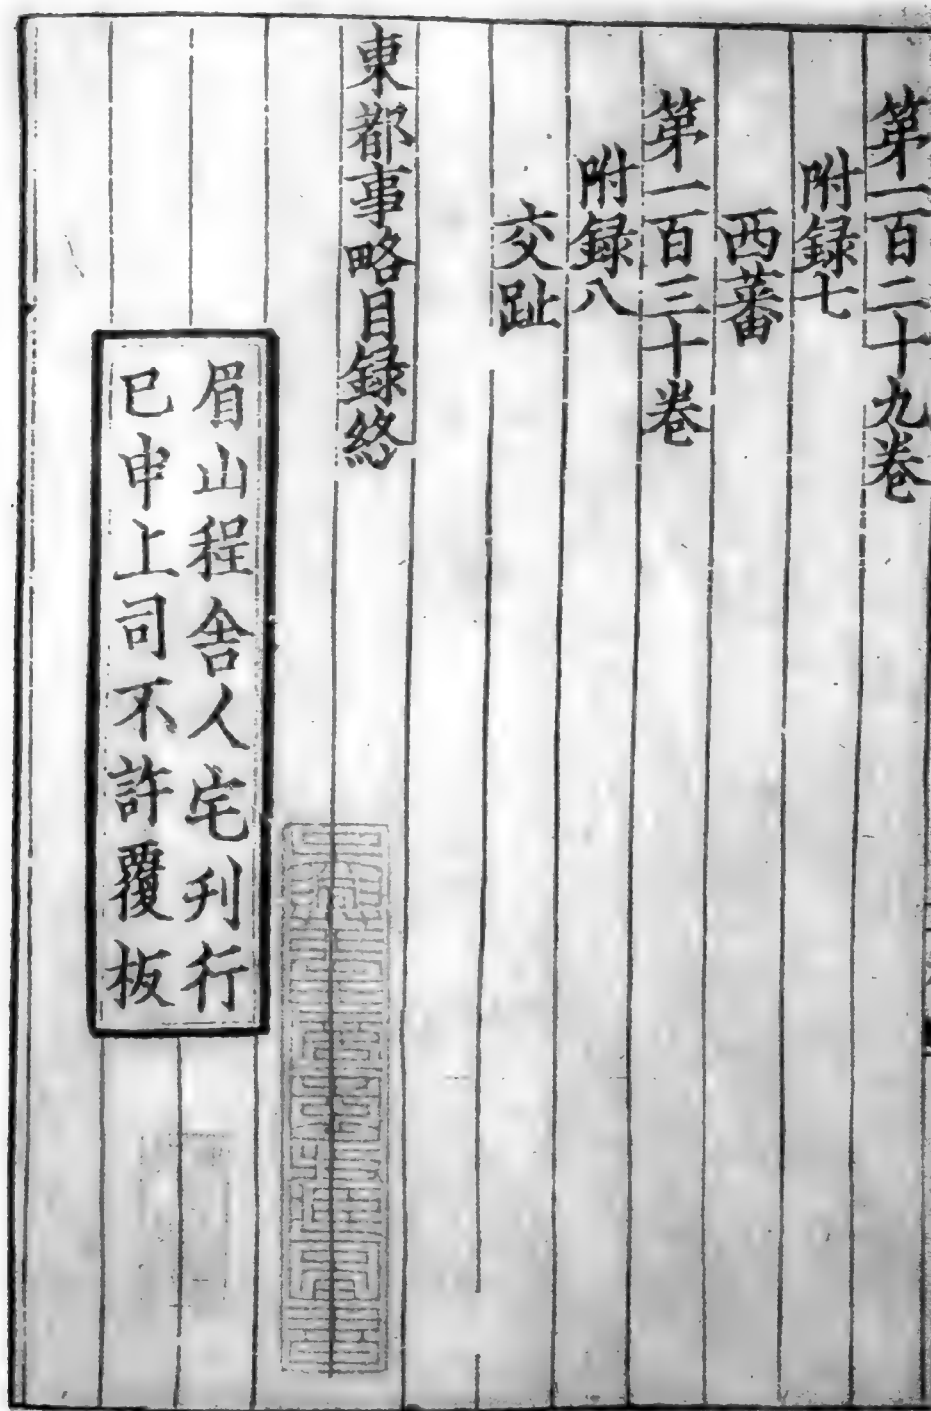 第一百二十九卷
附録七
西蕃
第一百三十卷
附録八
交趾
東都事略目録終
眉山程舎人宅刋行
已申上司不許覆板